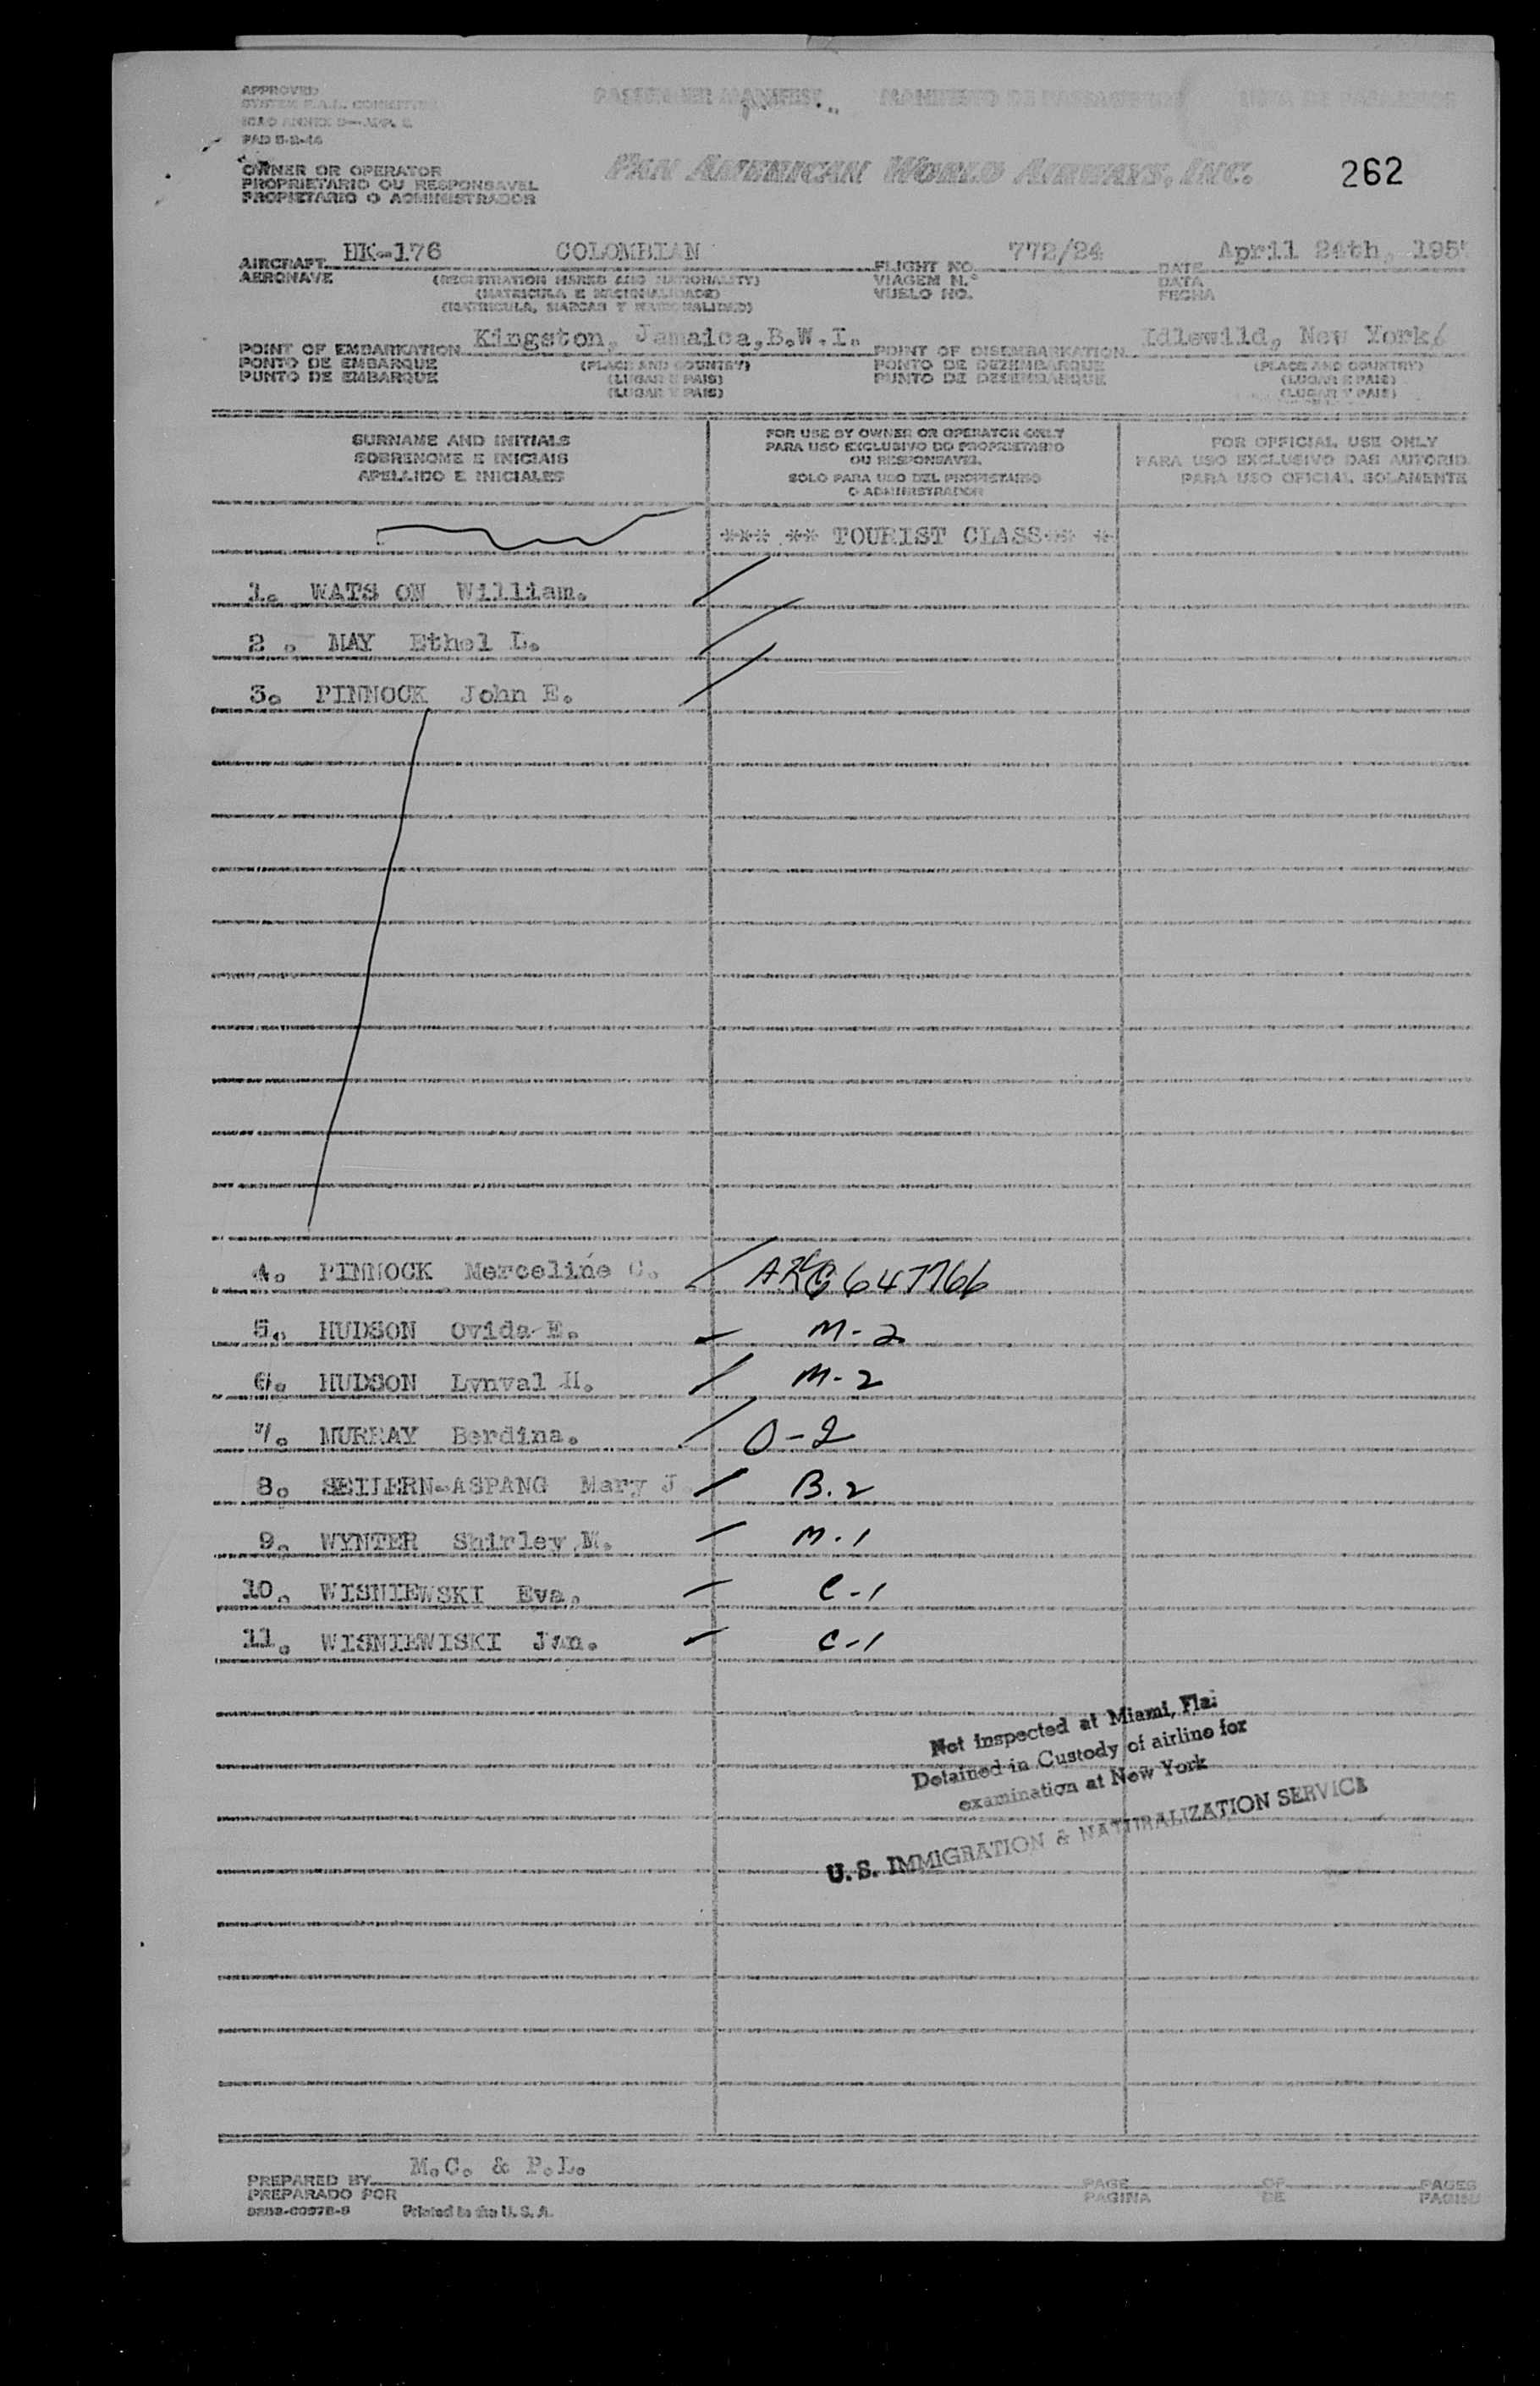 APPROVED
SYSTEM F.A.L. COMMITTEE
ICAO ANNEX 9—APP. 2
PAD 5-2-46
PASSENGER MANIFEST MANIFESTO DE PASSAGEIROS LISTA DE PASAJEROS
OWNER OR OPERATOR
PROPRIETARIO OU RESPONSAVEL
PROPIETARIO O ADMINISTRADOR
PAN AMERICAN WORLD AIRWAYS, INC.
262
AIRCRAFT HK-176 COLOMBIAN FLIGHT NO. 772/24 DATE April 24th, 195
AERONAVE (REGISTRATION MARKS AND NATIONALITY) VIAGEM N.° DATA
(MATRICULA E NACIONALIDADE) VUELO NO. FECHA
(MATRICULA, MARCAS Y NACIONALIDAD)
POINT OF EMBARKATION Kingston, Jamaica,B.W.I. POINT OF DISEMBARKATION Idlewild, New York/
PONTO DE EMBARQUE (PLACE AND COUNTRY) PONTO DE DEZEMBARQUE (PLACE AND COUNTRY)
PUNTO DE EMBARQUE (LUGAR E PAIS) PUNTO DE DESEMBARQUE (LUGAR E PAIS)
(LUGAR Y PAIS) (LUGAR Y PAIS)
SURNAME AND INITIALS
SOBRENOME E INICIAIS
APELLIDO E INICIALES
FOR USE BY OWNER OR OPERATOR ONLY
PARA USO EXCLUSIVO DO PROPRIETARIO
OU RESPONSAVEL
SOLO PARA USO DEL PROPIETARIO
O ADMINISTRADOR
FOR OFFICIAL USE ONLY
PARA USO EXCLUSIVO DAS AUTORID.
PARA USO OFICIAL SOLAMENTE
*** ** TOURIST CLASS** *
1. WATS ON William.
2 . MAY Ethel L.
3. PINNOCK John E.
4. PINNOCK Merceline C. 647766
5. HUDSON Ovida E. M-2
6. HUDSON Lynval H. M-2
7. MURRAY Berdina. O-2
8. SEILERN-ASPANG Mary J B.2
9. WYNTER Shirley M. M.1
10. WISNIEWSKI Eva. C-1
11. WISNIEWISKI Jan. C-1
Not inspected at Miami, Fla.
Detained in Custody of airline for
examination at New York
U. S. IMMIGRATION & NATURALIZATION SERVICE
PREPARED BY M.C. & P.L. PAGE OF PAGES
PREPARADO POR PAGINA DE
Printed in the U. S. A.